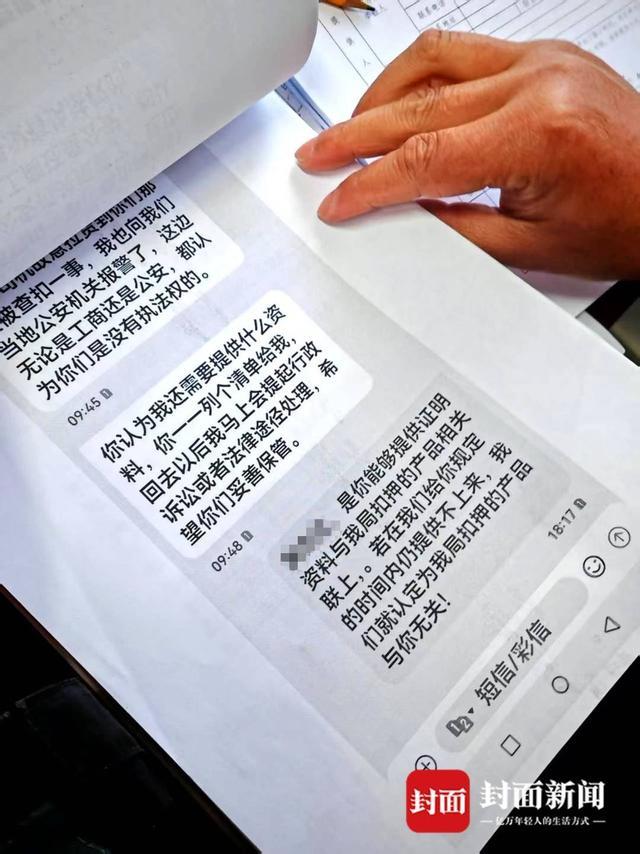 联系电话
故意拉货到你们那
被查扣一事，我也向我们
当地公安机关报警了，这边
无论是工商还是公安，都认
为你们是没有执法权的。
09:45
你认为我还需要提供什么资
料，你一一列个清单给我，
回去以后我马上会提起行政
诉讼或者法律途径处理，希
望你们妥善保管。
09:48
是你能够提供证明
资料与我局扣押的产品相关
联上，。若在我们给你规定
的时间内仍提供不上来，我
们就认定为我局扣押的产品
与你无关！
18:17
短信/彩信
封面
封面新闻
亿万年轻人的生活方式